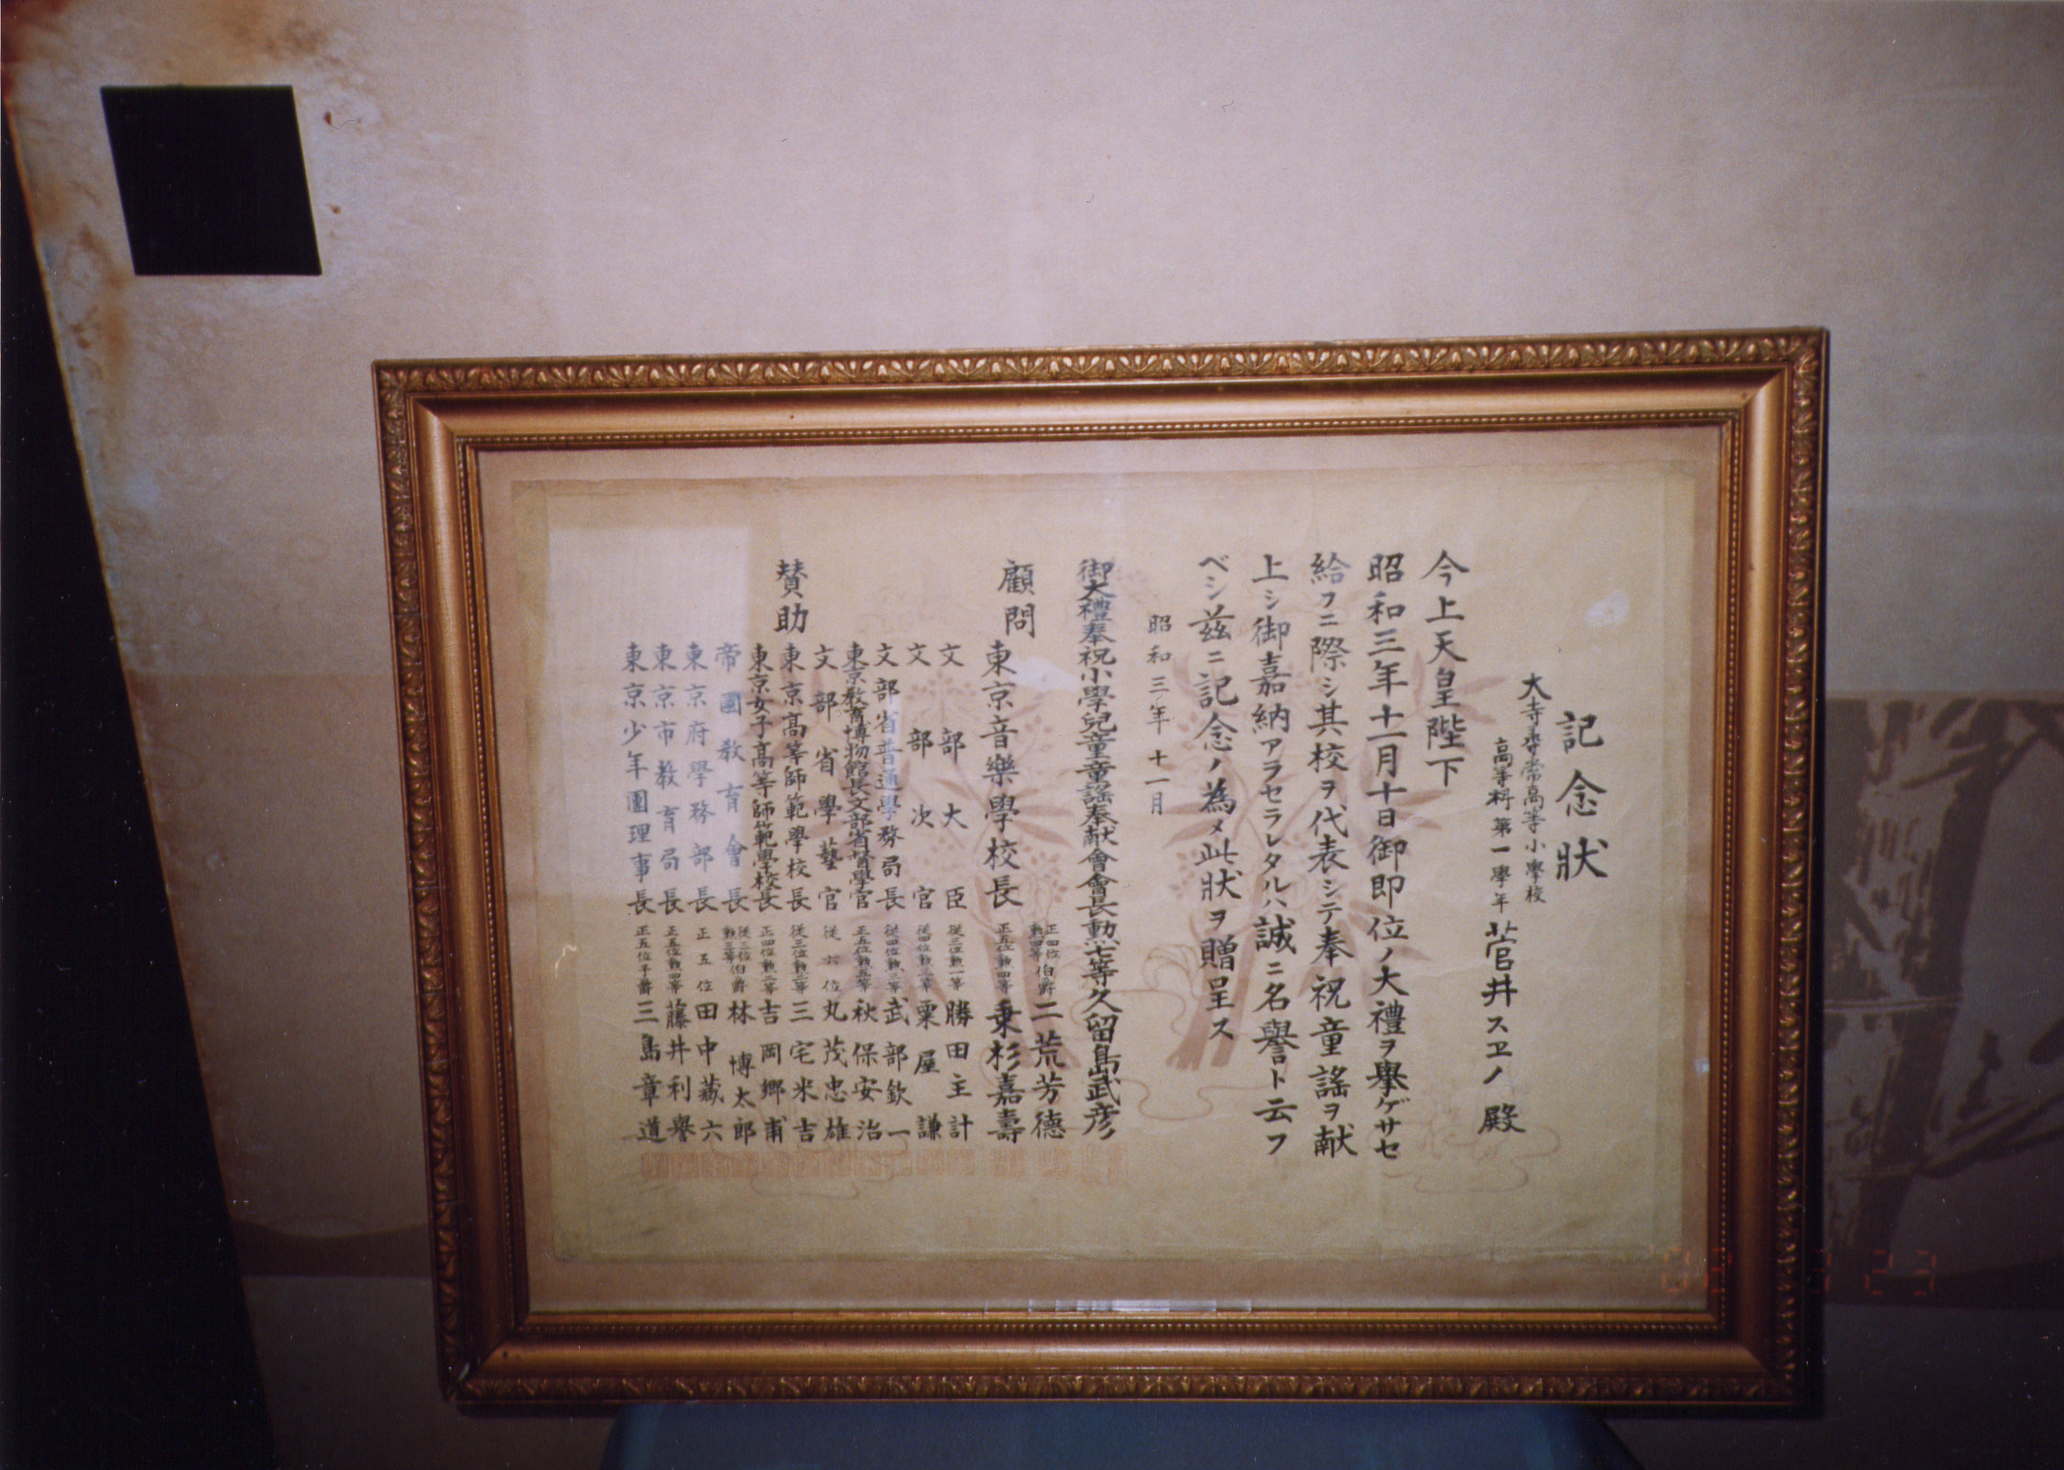 記念狀
大寺尋常高等小學校
高等科第一學年
菅井スヱノ 殿
今上天皇陛下
昭和三年十一月十日御即位ノ大禮ヲ擧ゲサセ
給フニ際シ其校ヲ代表シテ奉祝童謠ヲ献
上シ御嘉納アラセラレタルハ誠ニ名譽ト云フ
ベシ茲ニ記念ノ為メ此狀ヲ贈呈ス
昭和三年十一月
御大禮奉祝小學兒童童謠奉献會會長勳七等久留島武彦
顧問
正四位勳四等伯爵二荒芳德
東京音樂學校長 正五位勳四等乗杉嘉壽
文部大臣 從三位勳一等勝田主計
文部次官 從四位勳三等粟屋謙
文部省普通學務局長 從四位勳三等武部欽一
東京教育博物館長文部省督學官 正五位勳五等秋保安治
文部省學藝官 從六位丸茂忠雄
東京高等師範學校長 從三位勳二等三宅米吉
東京女子高等師範學校長 正四位勳二等吉岡郷甫
贊助
帝國教育會長 從三位勳三等伯爵林博太郎
東京府學務部長 正五位田中藏六
東京市教育局長 正五位勳四等藤井利譽
東京少年團理事長 正五位子爵三島章道